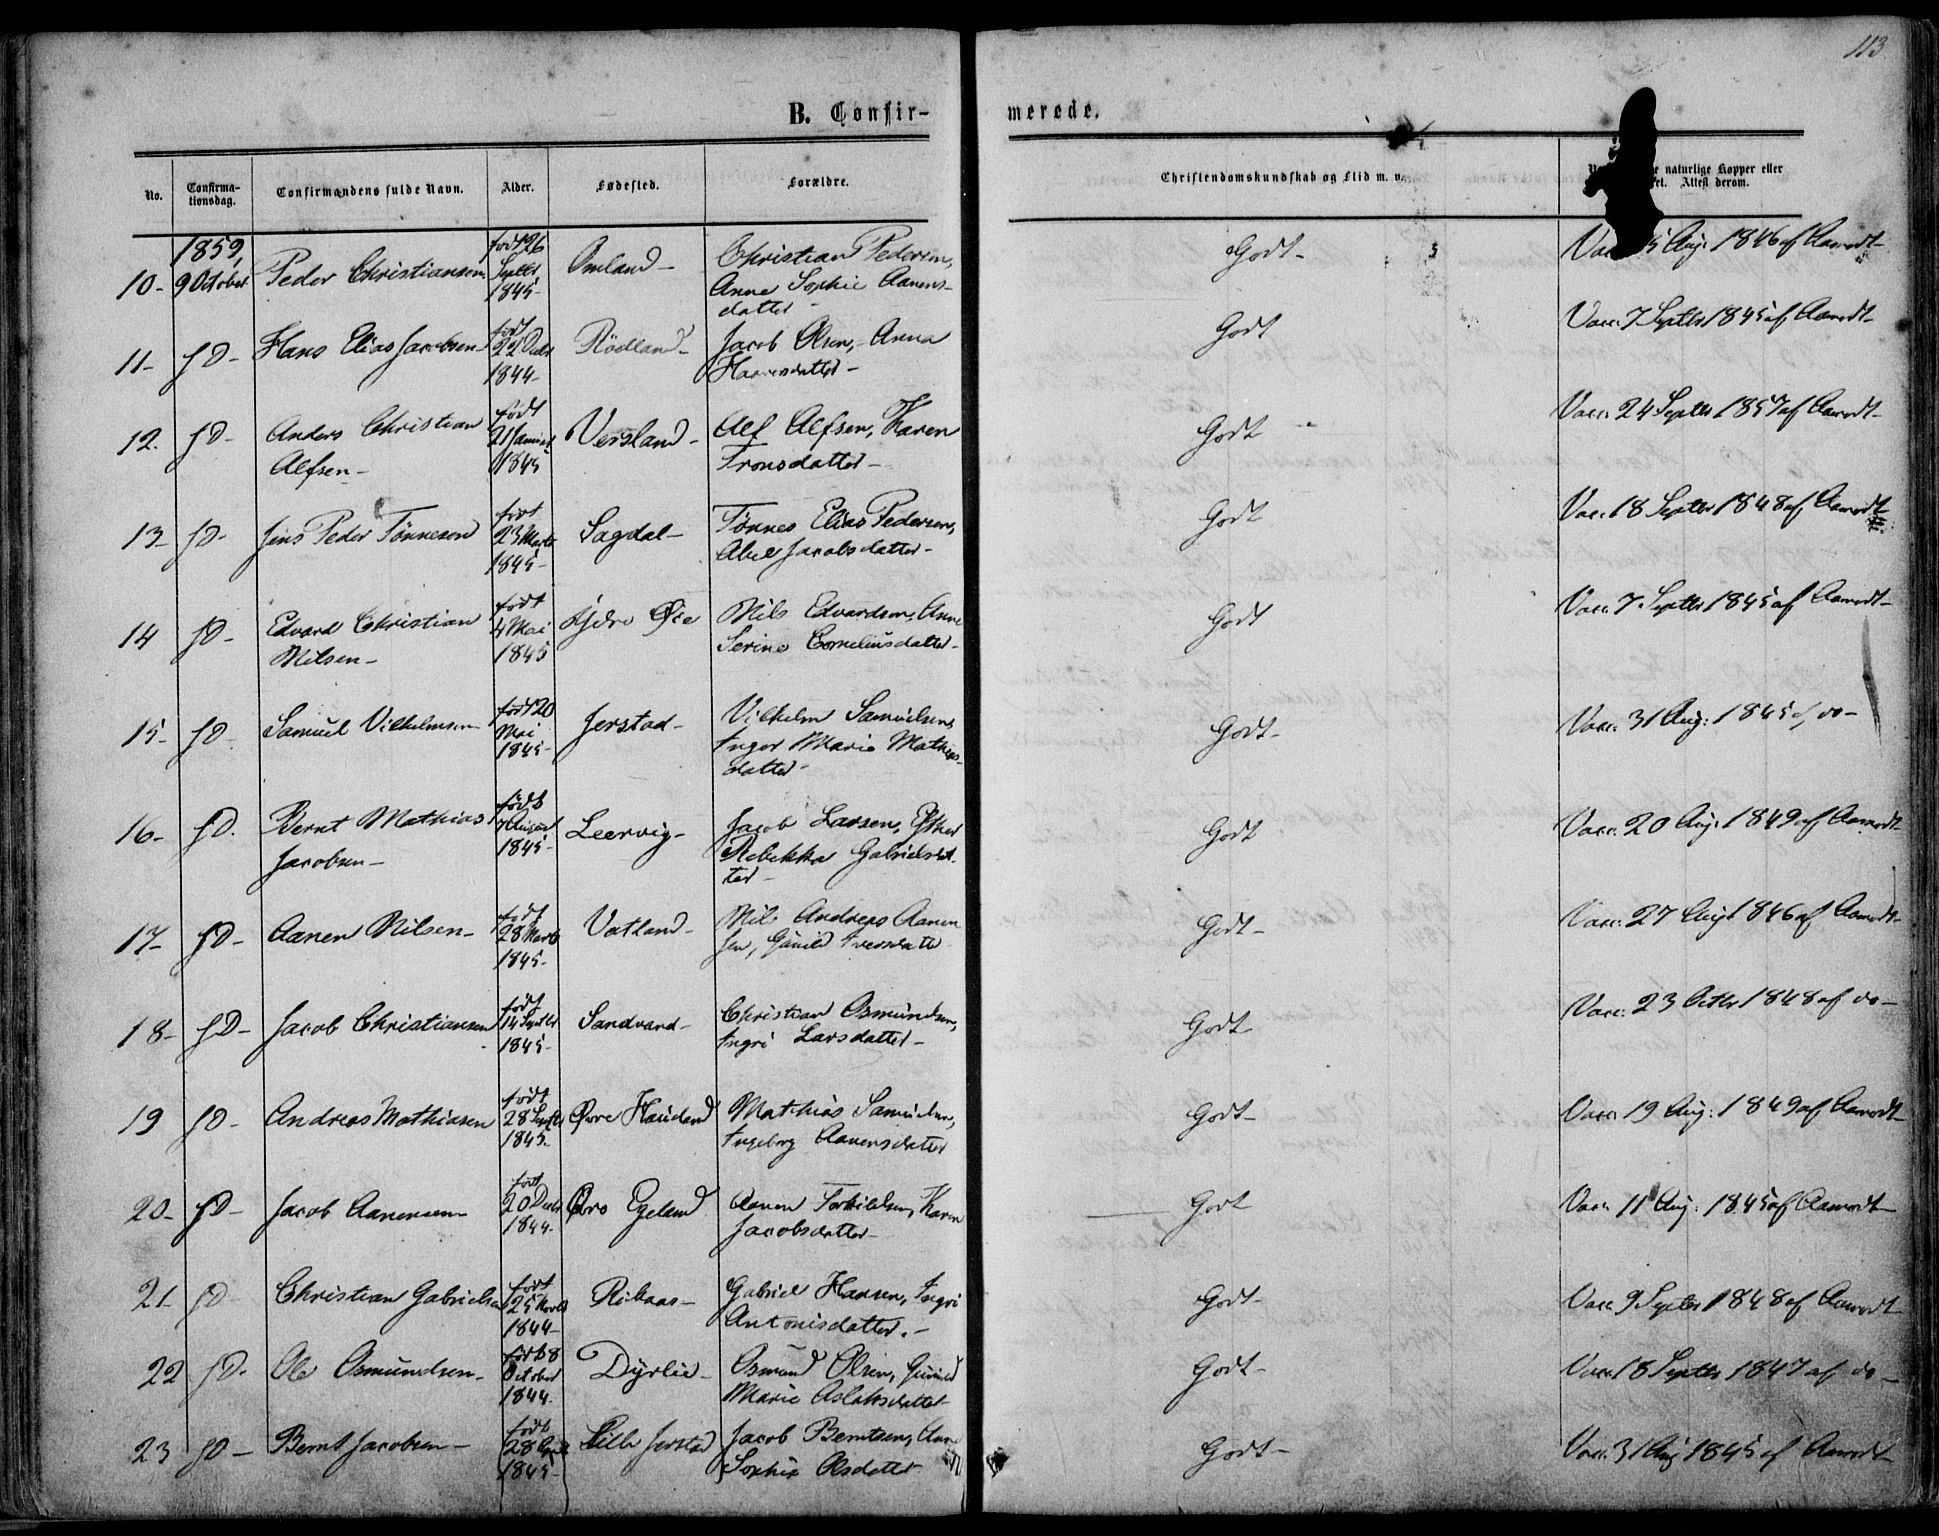 113
B. Confir-
merede.
No.
Confirma-
tionsdag.
Confirmandens fulde Navn.
Alder.
Fødested.
Forældre.
Christendomskundskab og Flid m. v.
naturlige Kopper eller
Attest derom.
1859,
10- 9 October Peder Christiansen født 26 Septbr 1845- Omland- Christian Pedersen, Anne Sophie Aanens-
datter- Godt- Vacc. Aug: 1846 af Aamodt-
11- JD- Hans Elias Jacobsen født 22 Decbr 1844- Rødland- Jacob Olsen,- Anna
Hansdatter- Godt Vacc. 7 Septbr 1845 af Aamodt-
12. JD- Anders Christian
Alfsen- født 21 Januar 1845 Versland- Alf Alfsen, Karen
Tronsdatter- Godt Vacc. 24 Septbr 1857 af Aamodt-
13- JD- Jens Peder Tønnesen født 23 Marts 1845- Sagdal- Tønnes Elias Pedersen,
Abel Jacobsdatter- Godt Vacc. 18 Septbr 1848 af Aamodt
14 JD- Edvard Christian
Nilsen- født 4 Mai 1845 Øie Nils Edvardsen, Anne
Serine Corneliusdatter- Godt Vacc. 7. Septbr 1845 af Aamodt-
15- JD- Samuel Vilhelmsen- født 20 Mai 1845- Jerstad- Vilhelm Samuelsen,
Inger Marie Mathias-
datter- Godt- Vacc. 31 Aug: 1845 af do-
16- JD. Bernt Mathias
Jacobsen- født 7 August 1845- Leervig- Jacob Larsen,
Rebekka Gabrielsdat-
ter- Godt Vacc. 20 Aug: 1849 af Aamodt-
17- JD- Aanen Nilsen- født 28 Marts 1845- Vatland- Nils Andreas Aanen
sen, Gunild Iversdatter Godt- Vacc. 27 Aug 1846 af Aamodt-
18- JD- Jacob Christiansen født 14 Septbr 1845- Sandvand- Christian Osmundsen,
Ingri Larsdatter- Godt- Vacc. 23 Octbr 1848 af do-
19 JD- Andreas Mathiasen født 28 Septbr 1845. Øvre Houland Mathias Samuelsen,
Ingeborg Aanensdatter Godt- Vacc. 19 Aug: 1849 af Aamodt-
20- JD- Jacob Aanensen født 20 Decbr 1844- Øvre Egeland Aanen Torkildsen, Karen
Jacobsdatter- Godt Vacc. 11 Aug: 1845 af Aamodt-
21- JD- Christian Gabrielsen født 25 Novbr 1844- Risbaas- Gabriel Hansen, Ingri
Antonisdatter.- Godt- Vacc 9 Septbr 1848 af Aamodt-
22 JD. Ole Osmundsen- født 8 October 1844. Dyrlie- Osmund Olsen, Gunild
Marie Aslaksdatter Godt- Vacc. 18 Septbr 1847 af do-
23 JD- Bernt Jacobsen- født 28 1845- Lille Jerstad Jacob Berntsen, Ane
Sophie Olsdatter Godt- Vacc. 31 Aug 1845 af Aamodt-